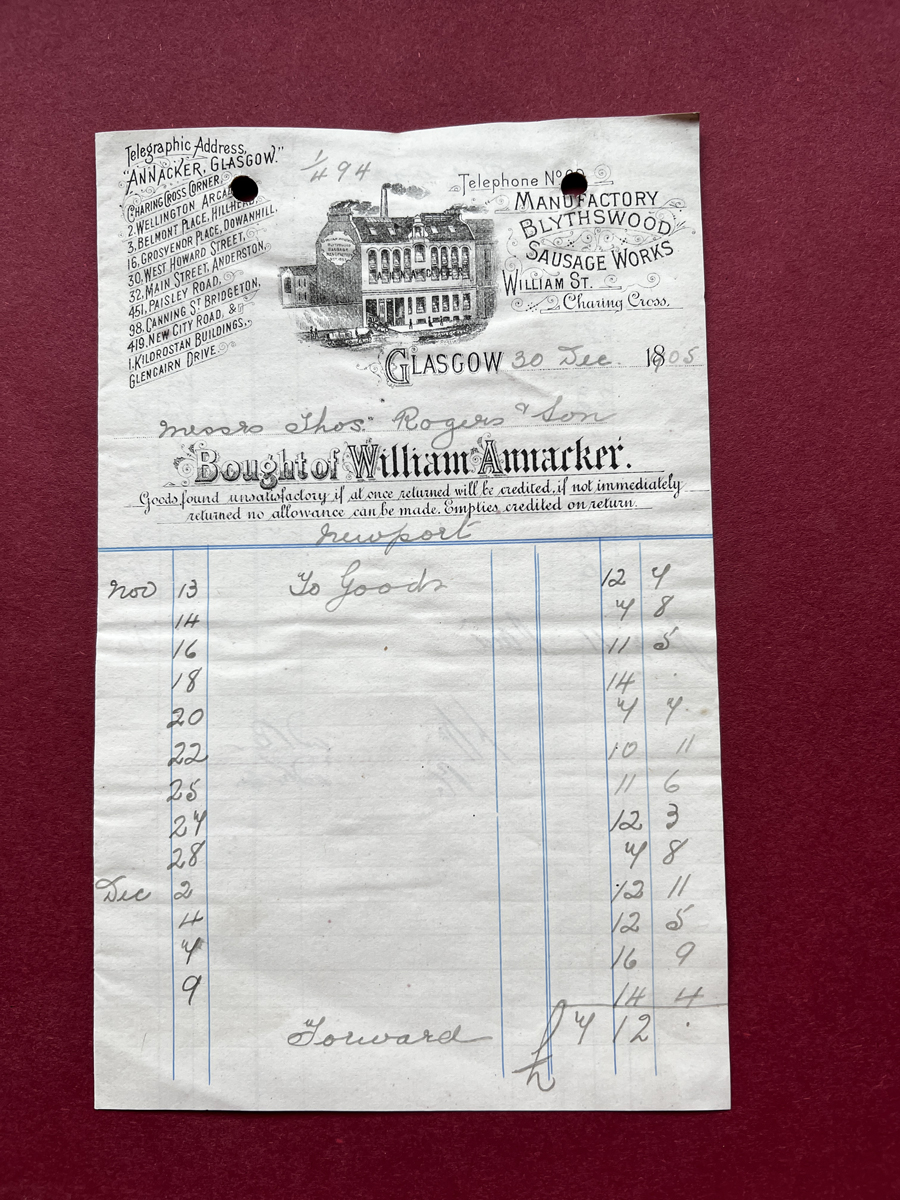 Telegraphic Address,
"Annacker, Glasgow."
Charing Cross Corner,
2, Wellington Arcade,
3, Belmont Place, Hillhead,
16, Grosvenor Place, Dowanhill,
30, West Howard Street,
32, Main Street, Anderston,
451, Paisley Road,
98, Canning St Bridgeton,
419, New City Road, &
1, Kildrostan Buildings,
Glencairn Drive.
1/4 94
Annacker
Telephone No
Manufactory
Blythswood
Sausage Works
William St.
Charing Cross.
Glasgow 30 Dec. 1905
Messrs Thos. Rogers & Son
Bought of William Annacker.
Goods found unsatisfactory if at once returned will be credited, if not immediately
returned no allowance can be made. Empties credited on return.
Newport
Nov 13 To Goods 12 7
14 7 8
16 11 5
18 14 .
20 7 7
22 10 11
25 11 6
27 12 3
28 7 8
Dec 2 12 11
4 12 5
7 16 9
9 14 4
Forward £ 7 12 .